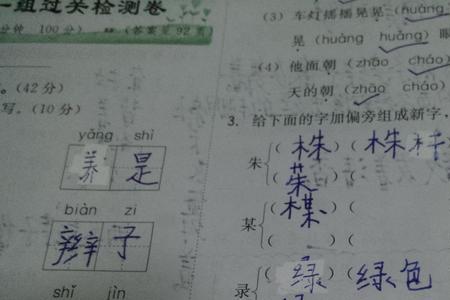 一组过关检测卷
分钟 100分) (答案见92页
。(42分)
写。(10分)
yǎng shì
养 是
biàn zi
辫 子
shǐ jìn
(3) 车灯摇摇晃晃(huǎng
晃(huàng huǎng)眼
(4) 他面朝(zhāo cháo)
天的朝(zhāo cháo)
3. 给下面的字加偏旁组成新字,
朱 (株)(株
(茱
某 (楳)(
( )(
录 (绿)(绿色